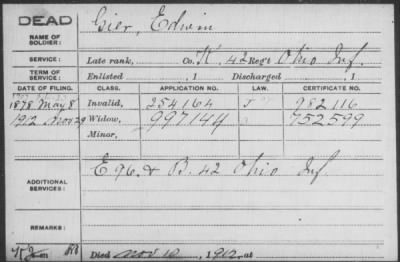 DEAD
NAME OF SOLDIER: Gier, Edwin
SERVICE: Late rank, Co. K. 42 Reg't Ohio Inf.
TERM OF SERVICE: Enlisted , 1 Discharged , 1
DATE OF FILING. CLASS. APPLICATION NO. LAW. CERTIFICATE NO.
1878 May 8 Invalid, 254164 982116
1912 Nov 29 Widow, 997144 752599
Minor,
ADDITIONAL SERVICES: E 96. & B. 42 Ohio Inf
REMARKS:
Died Nov 10, 1912, at